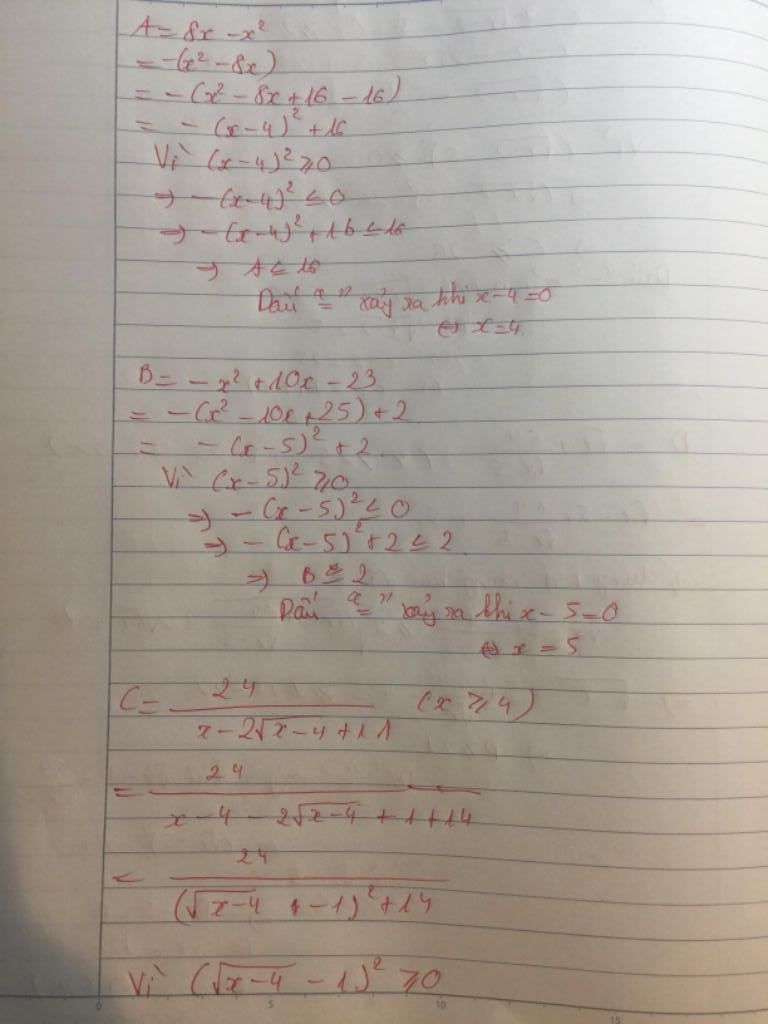 A = 8x - x²
= -(x² - 8x)
= -(x² - 8x + 16 - 16)
= - (x-4)² + 16
Vì (x-4)² ≥ 0
⇒ -(x-4)² ≤ 0
⇒ -(x-4)² + 16 ≤ 16
⇒ A ≤ 16
Dấu "=" xảy ra khi x-4=0
⇔ x=4.
B = - x² + 10x - 23
= -(x² - 10x + 25) + 2
= - (x-5)² + 2.
Vì (x-5)² ≥ 0
⇒ -(x-5)² ≤ 0
⇒ -(x-5)² + 2 ≤ 2
⇒ B ≤ 2
Dấu "=" xảy ra khi x-5=0
⇔ x = 5
C = 24 / (x - 2√(x-4) + 11) (x ≥ 4)
= 24 / (x - 4 - 2√(x-4) + 1 + 14)
= 24 / ((√(x-4) - 1)² + 14)
Vì (√(x-4) - 1)² ≥ 0
0 5 10 15